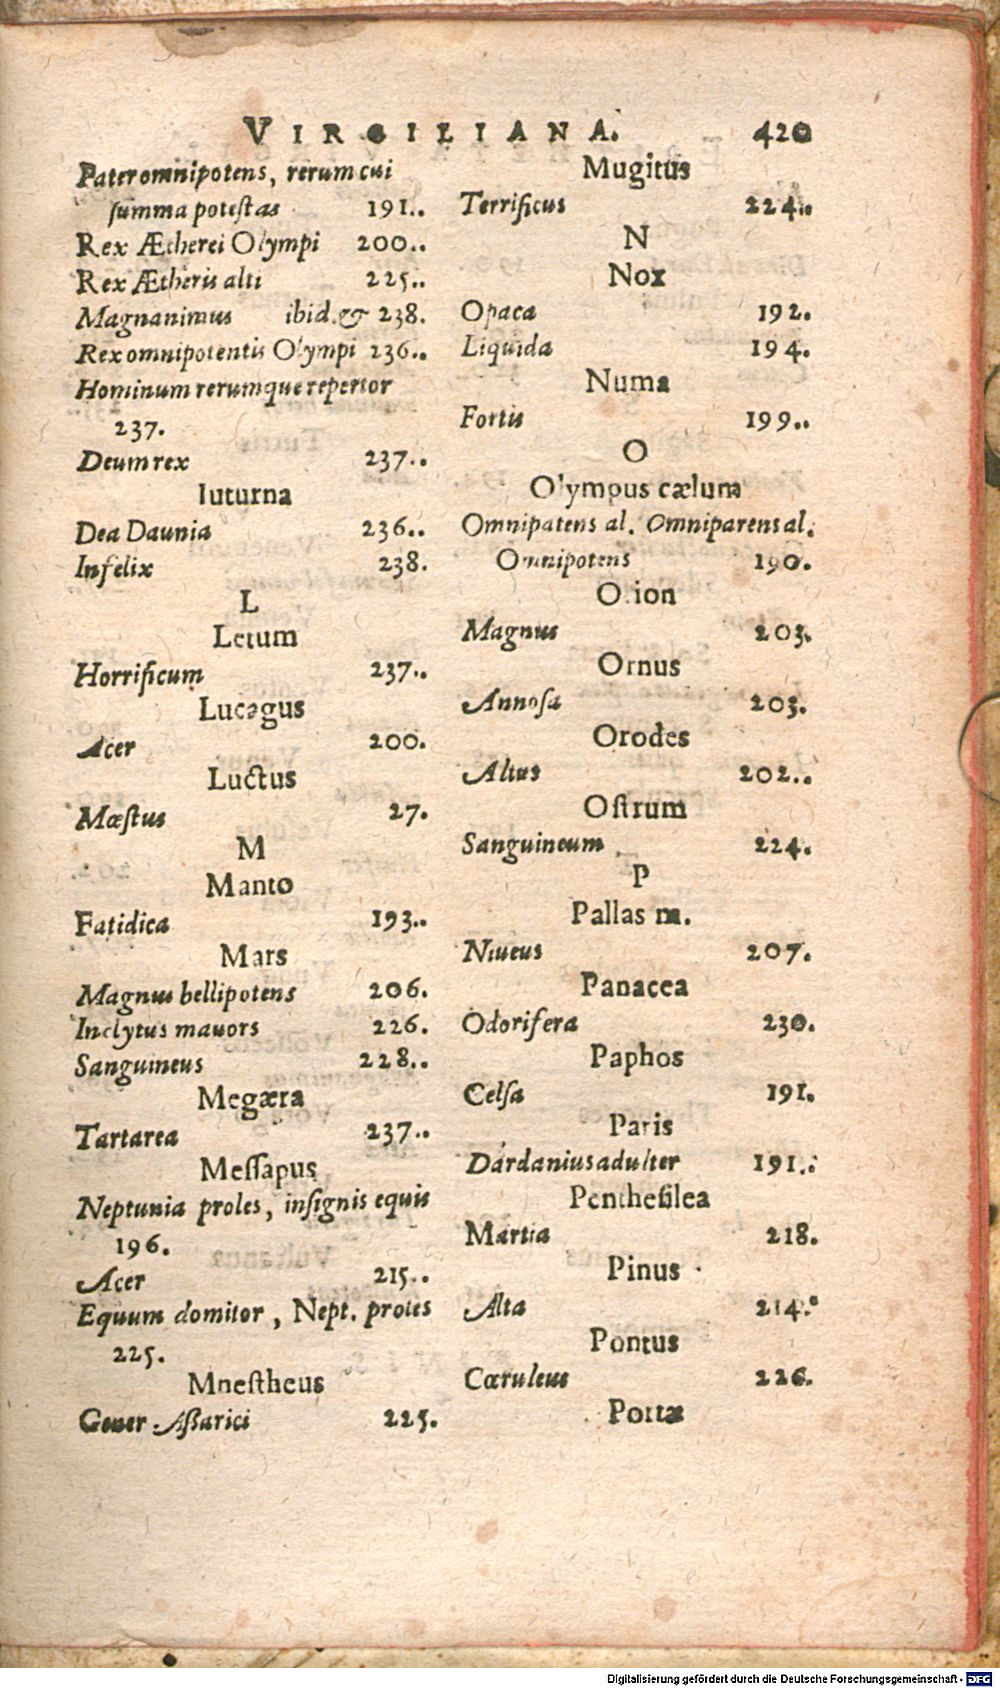 VIRGILIANA. 420
Pater omnipotens, rerum cui
ſumma poteſtas 191..
Rex Ætherei Olympi 200..
Rex Ætheris alti 225..
Magnanimus ibid. & 238.
Rex omnipotentis Olympi 236..
Hominum rerumque repertor
237.
Deum rex 237..
Iuturna
Dea Daunia 236..
Infelix 238.
L
Letum
Horrificum 237..
Lucagus
Acer 200.
Luctus
Mæſtus 27.
M
Manto
Fatidica 193..
Mars
Magnus bellipotens 206.
Inclytus mauors 226.
Sanguineus 228..
Megæra
Tartarea 237..
Meſſapus
Neptunia proles, inſignis equis
196.
Acer 215..
Equum domitor, Nept. proles
225.
Mneſtheus
Gener Aßarici 225.
Mugitus
Terrificus 224..
N
Nox
Opaca 192.
Liquida 194.
Numa
Fortis 199..
O
Olympus cælum
Omnipatens al. Omniparens al.
Omnipotens 190.
O.ion
Magnus 203.
Ornus
Annoſa 203.
Orodes
Altus 202..
Oſtrum
Sanguineum 224.
P
Pallas m.
Niueus 207.
Panacea
Odorifera 230.
Paphos
Celſa 191.
Paris
Dardanius adulter 191..
Pentheſilea
Martia 218.
Pinus
Alta 214.
Pontus
Cæruleus 226.
Portæ
Digitalisierung gefördert durch die Deutsche Forschungsgemeinschaft - DFG